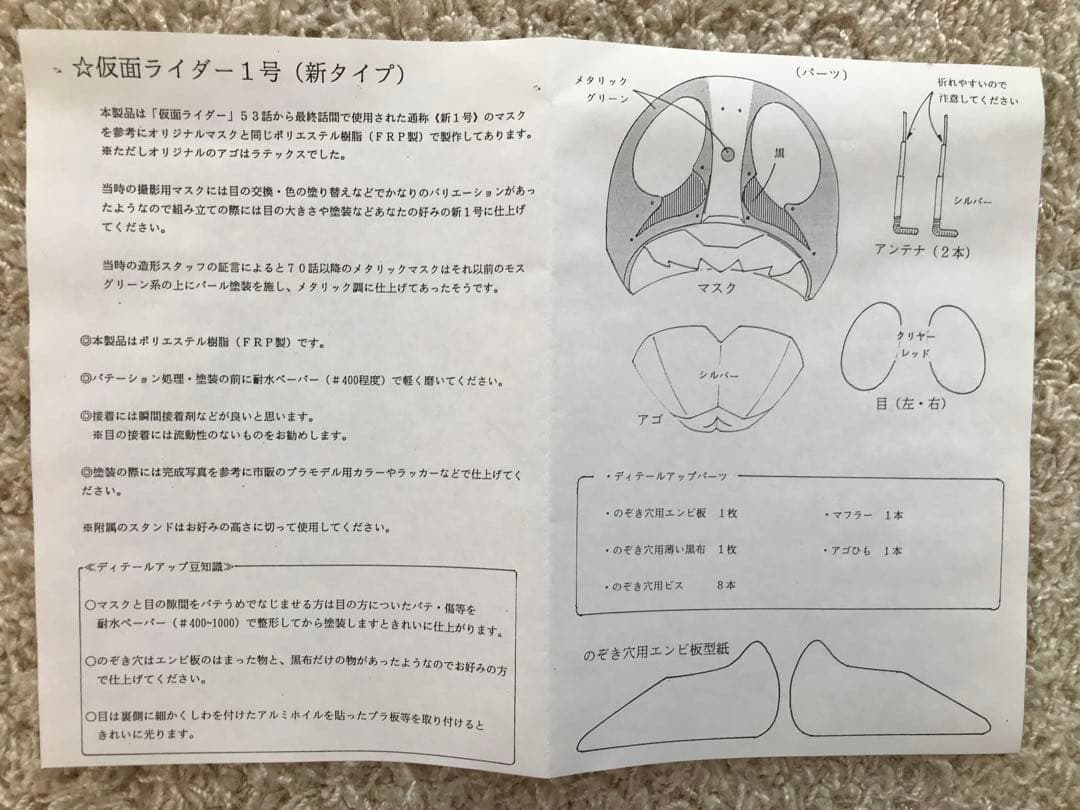 ☆仮面ライダー１号（新タイプ）
本製品は「仮面ライダー」５３話から最終話間で使用された通称《新１号》のマスク
を参考にオリジナルマスクと同じポリエステル樹脂（ＦＲＰ製）で製作してあります。
※ただしオリジナルのアゴはラテックスでした。
当時の撮影用マスクには目の交換・色の塗り替えなどでかなりのバリエーションがあっ
たようなので組み立ての際には目の大きさや塗装などあなたの好みの新１号に仕上げ
てください。
当時の造形スタッフの証言によると７０話以降のメタリックマスクはそれ以前のモス
グリーン系の上にパール塗装を施し、メタリック調に仕上げてあったそうです。
◎本製品はポリエステル樹脂（ＦＲＰ製）です。
◎パテーション処理・塗装の前に耐水ペーパー（＃400程度）で軽く磨いてください。
◎接着には瞬間接着剤などが良いと思います。
※目の接着には流動性のないものをお勧めします。
◎塗装の際には完成写真を参考に市販のプラモデル用カラーやラッカーなどで仕上げてく
ださい。
※附属のスタンドはお好みの高さに切って使用してください。
≪ディテールアップ豆知識≫
○マスクと目の隙間をパテうめでなじませる方は目の方についたパテ・傷等を
耐水ペーパー（＃400~1000）で整形してから塗装しますときれいに仕上がります。
○のぞき穴はエンビ板のはまった物と、黒布だけの物があったようなのでお好みの方
で仕上げてください。
○目は裏側に細かくしわを付けたアルミホイルを貼ったプラ板等を取り付けると
きれいに光ります。
（パーツ）
メタリック
グリーン
黒
マスク
折れやすいので
注意してください
シルバー
アンテナ（２本）
シルバー
アゴ
クリヤー
レッド
目（左・右）
・ディテールアップパーツ
・のぞき穴用エンビ板　１枚
・マフラー　１本
・のぞき穴用薄い黒布　１枚
・アゴひも　１本
・のぞき穴用ビス　８本
のぞき穴用エンビ板型紙